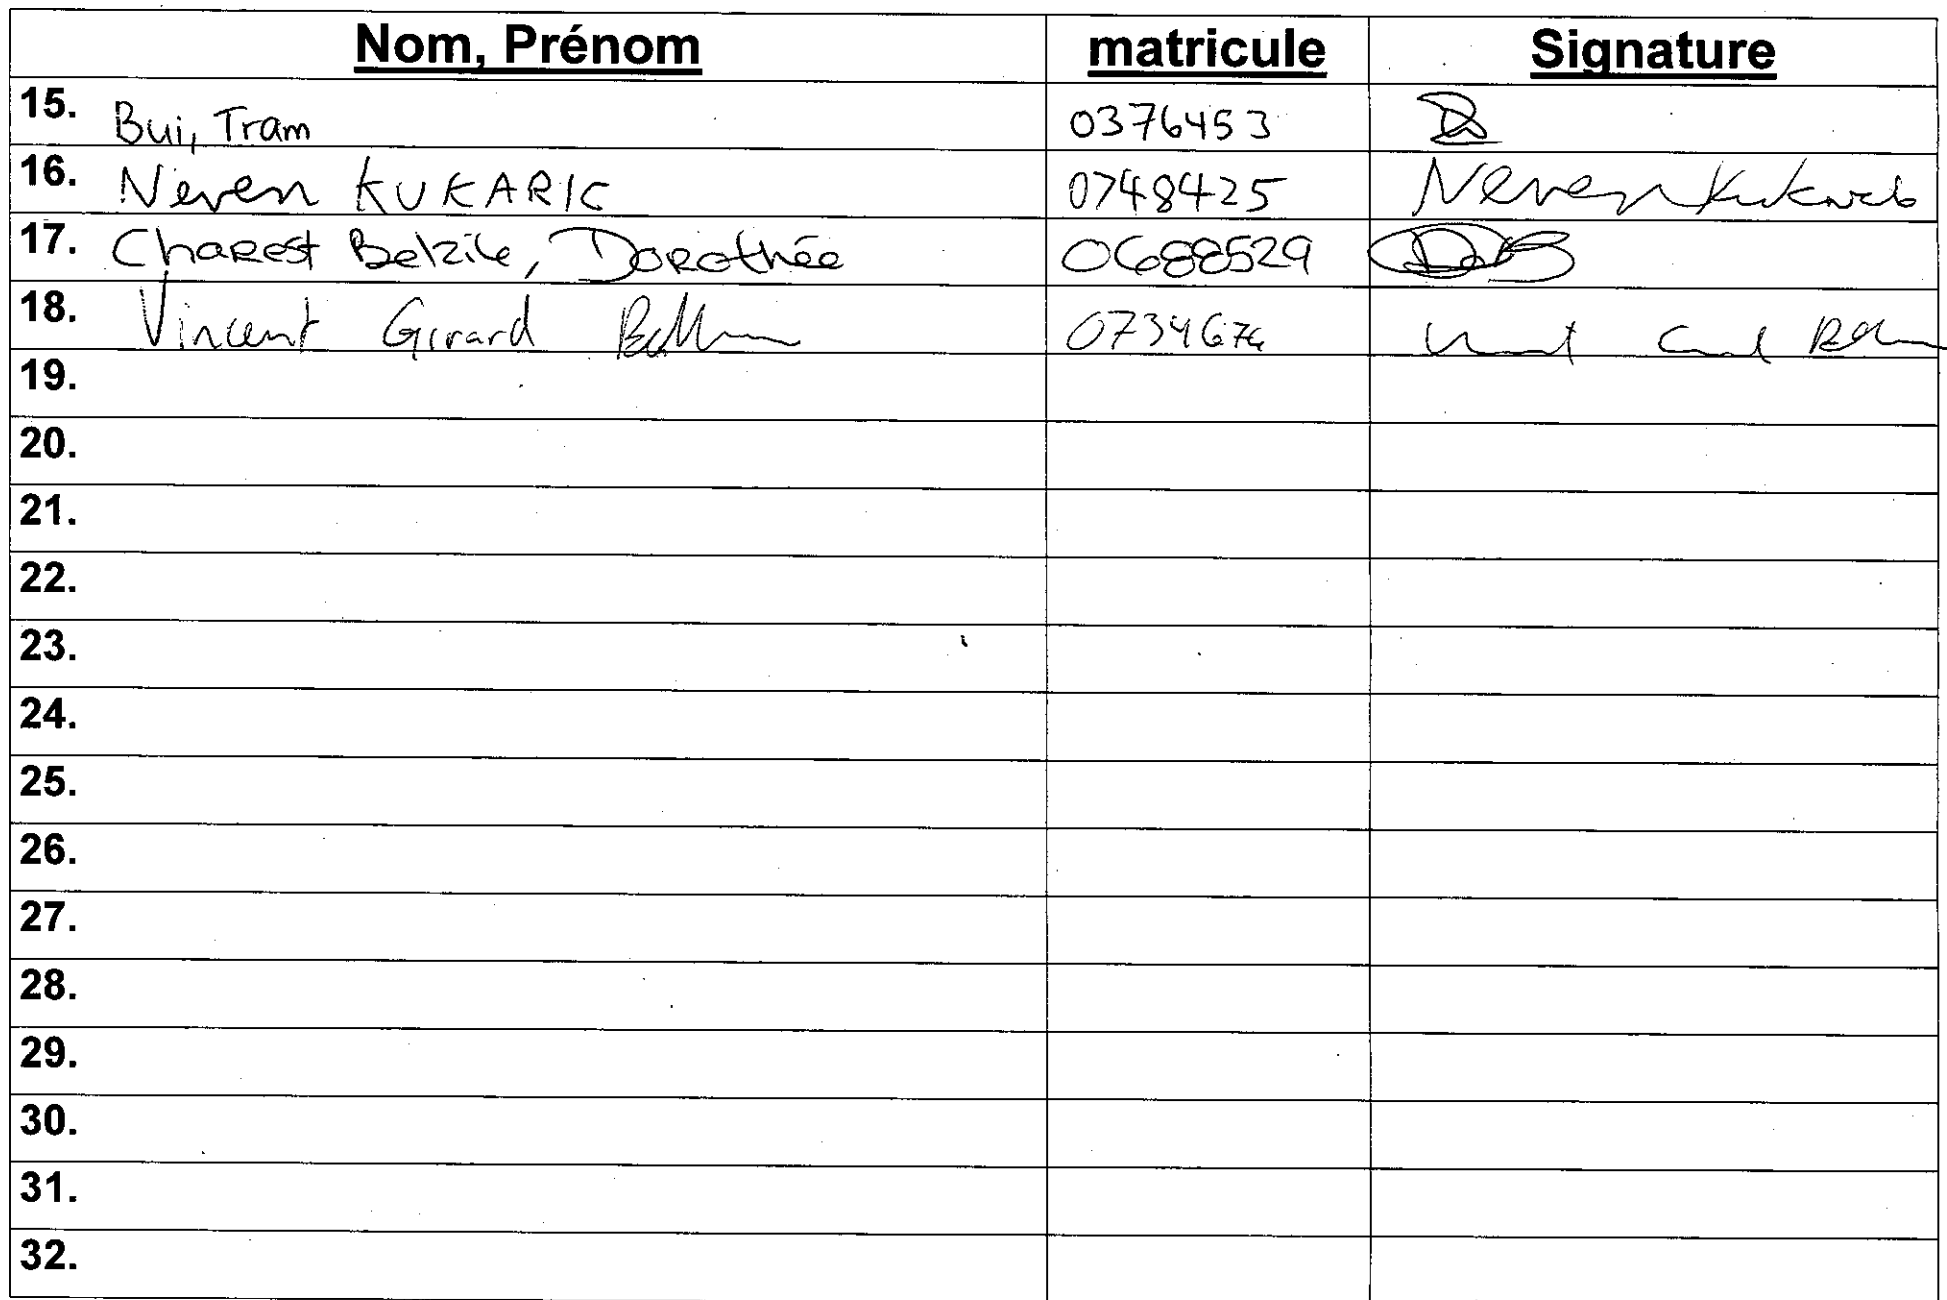 Nom, Prénom matricule Signature
15. Bui, Tram 0376453
16. Neven KUKARIC 0748425 Neven Kukaric
17. Charest Belzile, Dorothée 0688529 DCB
18. Vincent Girard
19.
20.
21.
22.
23.
24.
25.
26.
27.
28.
29.
30.
31.
32.